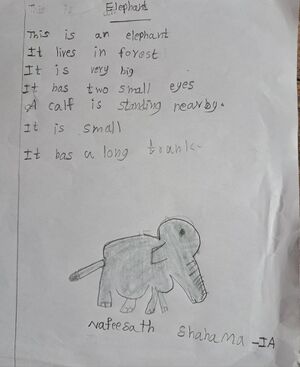 Elephant
This is an elephant
It lives in forest
It is very big
It has two small eyes
A calf is standing nearby.
It is small
It has a long
Nafeesath Shahama - IA